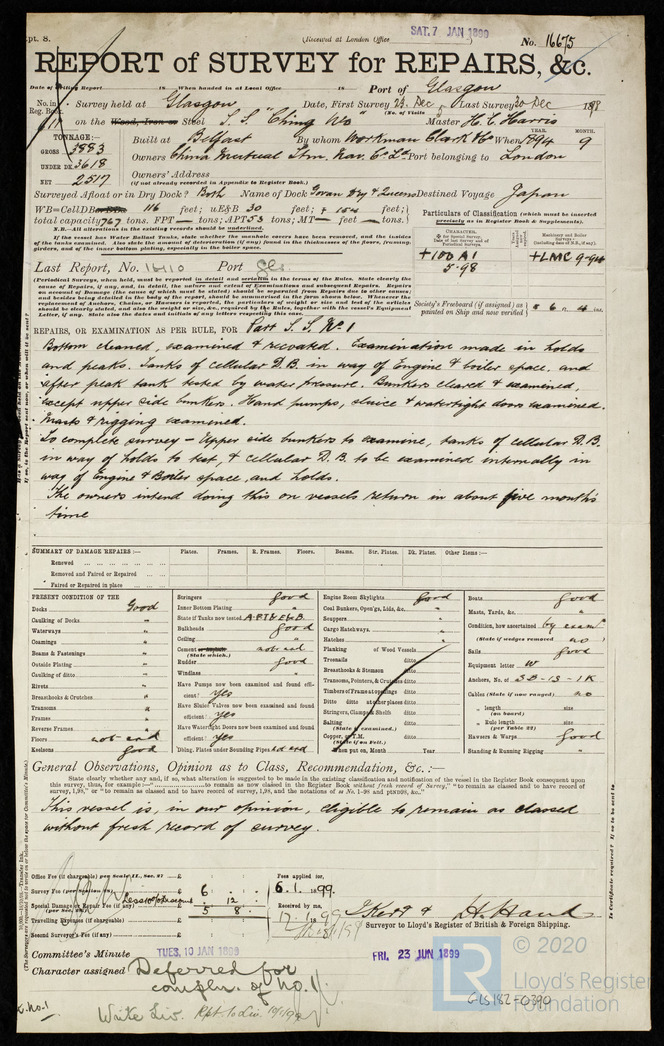 Rpt. 8.
(Received at London Office
SAT. 7 JAN 1899
No. 16675
REPORT of SURVEY for REPAIRS, &c.
Date of Writing Report 18 When handed in at Local Office 18 Port of Glasgow
No. in Reg. Book. Survey held at Glasgow Date, First Survey 23 Dec Last Survey 30 Dec 1898
(No. of Visits
on the Wood, Iron or Steel S.S. "Ching Wo" Master H. C. Harris
TONNAGE:—
GROSS 3883
UNDER DK 3618
NET 2517
Built at Belfast By whom Workman Clark & Co When 1894 9
YEAR. MONTH.
Owners China Mutual Stm. Nav. Co. Ld. Port belonging to London
Owners' Address
(if not already recorded in Appendix to Register Book.)
Surveyed Afloat or in Dry Dock? Both Name of Dock Govan Dry & Queens Destined Voyage Japan
WB=CellDB 116 feet; uE&B 30 feet; feet;
total capacity 767 tons. FPT — tons; APT 53 tons; MT — feet — tons.
N.B.—All alterations in the existing records should be underlined.
Particulars of Classification (which must be inserted precisely as in Register Book & Supplements).
+100A1
5-98
+LMC 9-94
Last Report, No. 16110 Port Gls
Society's Freeboard (if assigned) as painted on Ship and now verified 6 ft. 4 ins.
REPAIRS, OR EXAMINATION AS PER RULE, FOR Part S.S. No. 1
Bottom cleaned, examined & recoated. Examination made in holds
and peaks. Tanks of cellular D.B. in way of Engine & boiler space, and
after peak tank tested by water pressure. Bunkers cleared & examined,
except upper side bunkers. Hand pumps, sluice & watertight doors examined.
Masts & rigging examined.
To complete survey – Upper side bunkers to examine, tanks of cellular D.B.
in way of holds to test, & cellular D.B. to be examined internally in
way of Engine & Boiler space, and holds.
The owners intend doing this on vessels return in about five month's
time
SUMMARY OF DAMAGE REPAIRS:— Plates. Frames. R. Frames. Floors. Beams. Str. Plates. Dk. Plates. Other Items:—
Renewed
Removed and Faired or Repaired
Faired or Repaired in place
PRESENT CONDITION OF THE
Decks Good
Caulking of Decks "
Waterways "
Coamings "
Beams & Fastenings "
Outside Plating "
Caulking of ditto "
Rivets "
Breasthooks & Crutches "
Transoms "
Frames "
Reverse Frames "
Floors not exd
Keelsons good
Stringers good
Inner Bottom Plating "
State if Tanks now tested APT & E&B
Bulkheads good
Ceiling "
Cement not exd
(State which.)
Rudder good
Windlass "
Have Pumps now been examined and found efficient? Yes
Have Sluice Valves now been examined and found efficient? Yes
Have Watertight Doors now been examined and found efficient? Yes
Dblng. Plates under Sounding Pipes not exd
Engine Room Skylights good
Coal Bunkers, Open'gs, Lids, &c. "
Scuppers "
Cargo Hatchways "
Hatches "
Planking of Wood Vessels
Treenails ditto
Breasthooks & Stemson ditto
Transoms, Pointers, & Crutches ditto
Timbers of Frame at openings ditto
Ditto ditto at other places ditto
Stringers, Clamps & Shelfs ditto
Salting ditto
(State if examined.)
Copper, or Y.M.
(State if on Felt.)
When put on, Month Year
Boats good
Masts, Yards, &c. "
Condition, how ascertained by exam
(State if wedges removed no)
Sails good
Equipment letter W
Anchors, No. of 3B-1S-1K
Cables (State if now ranged) no
" length size
(on board)
" Rule length size
(per Table 22)
Hawsers & Warps good
Standing & Running Rigging "
General Observations, Opinion as to Class, Recommendation, &c.:—
State clearly whether any and, if so, what alteration is suggested to be made in the existing classification and notification of the vessel in the Register Book consequent upon
This vessel is, in our opinion, eligible to remain as classed
without fresh record of survey.
Office Fee (if chargeable) per Scale II., Sec. 27) £
Survey Fee (per Section 28) £ 6
Special Damage or Repair Fee (if any) £ 12
5 8
Travelling Expenses (if chargeable) £
Second Surveyor's Fee (if any) £
Fees applied for, 6.1.1899.
Received by me,
H. Hand
Surveyor to Lloyd's Register of British & Foreign Shipping.
Committee's Minute TUES. 10 JAN 1899 FRI. 23 JUN 1899
Character assigned Deferred for
complen. of No. 1.
Write Liv. Rpt. to Liv. 10/1/99
© 2020
Lloyd's Register
Foundation
GLS182-0390